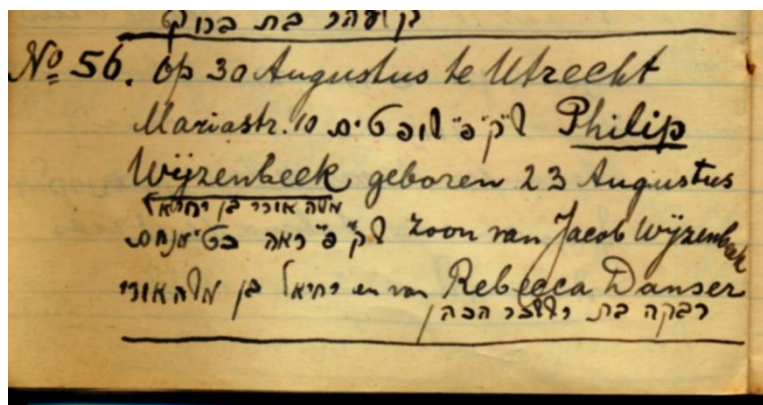 בת ברוך
No 56. Op 30 Augustus te Utrecht
Mariastr. 10 לק"פ שופטים Philip
Wijzenbeek geboren 23 Augustus
משה אורי בן יחיאל
לק"פ ראה zoon van Jacob Wijzenbeek
יחיאל בן משה אורי en van Rebecca Danser
רבקה בת הכהן